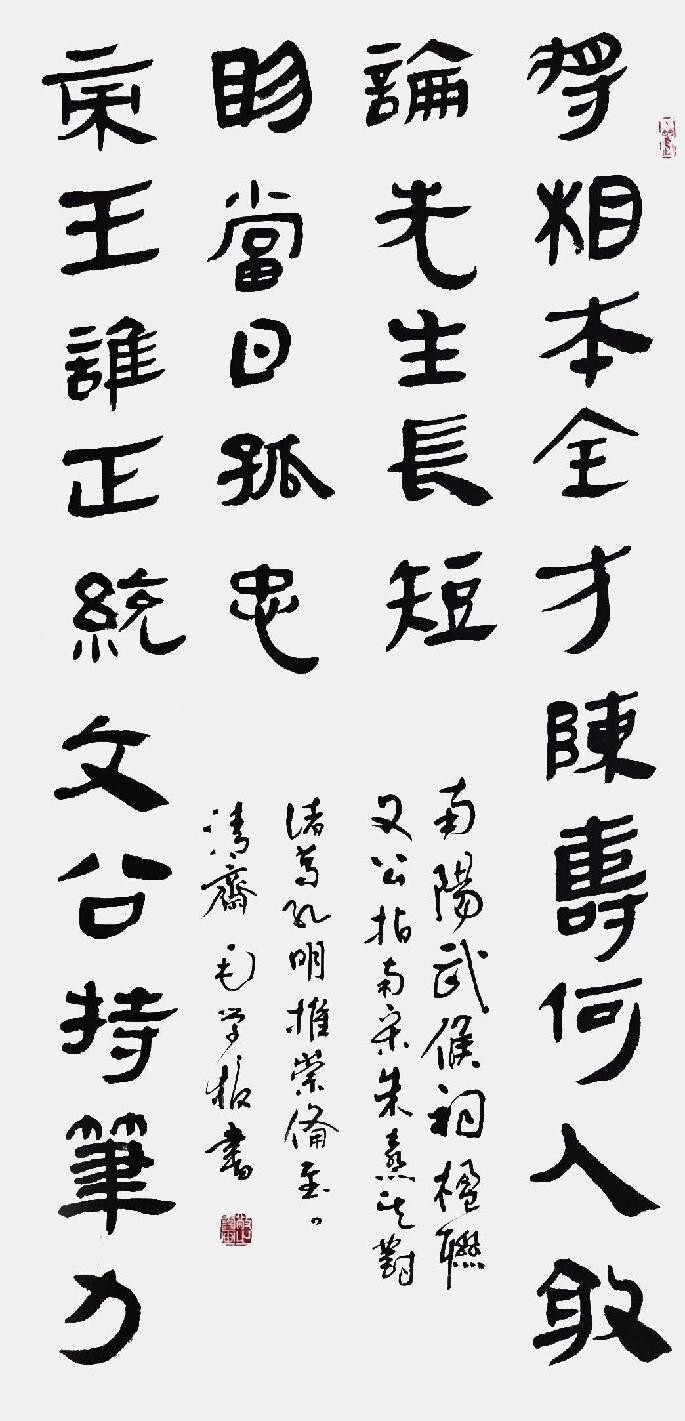 將相本全才陳壽何人敢
論先生長短
帝王誰正統文公持筆力
明當日孤忠
南陽武候祠楹聯
文公指南宋朱熹其對
諸葛孔明推崇備至。
清齋毛学書